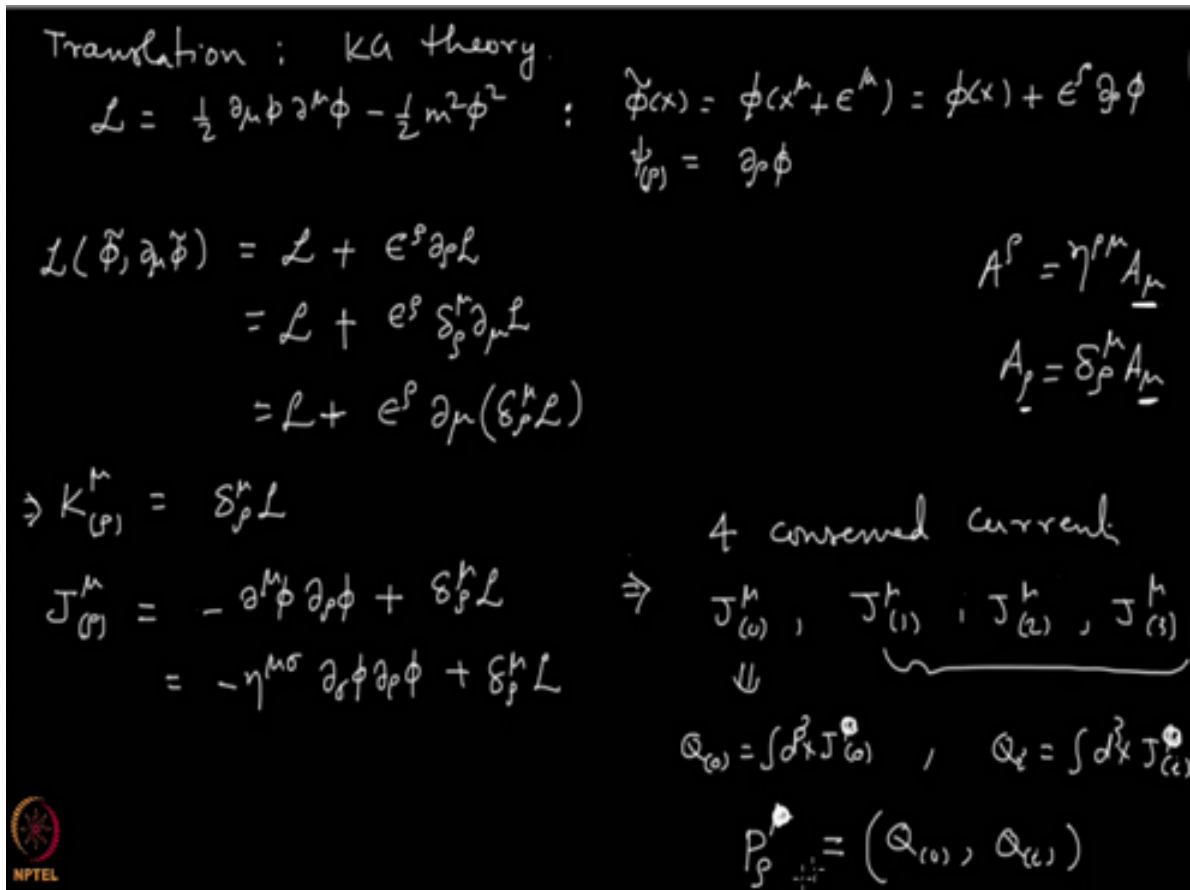 Translation : KG theory.
L = ½ ∂μφ ∂^μφ − ½ m²φ² : φ̃(x) = φ(x^μ + ε^μ) = φ(x) + ε^ρ ∂ρφ
ψ(ρ) = ∂ρφ
L(φ̃, ∂μφ̃) = L + ε^ρ ∂ρL
= L + ε^ρ δ^μ_ρ ∂μL
= L + ε^ρ ∂μ(δ^μ_ρ L)
A^ρ = η^ρμ A_μ
A_ρ = δ^μ_ρ A_μ
⇒ K^μ_(ρ) = δ^μ_ρ L
J^μ_(ρ) = − ∂^μφ ∂ρφ + δ^μ_ρ L
= − η^μσ ∂σφ ∂ρφ + δ^μ_ρ L
4 conserved current
⇒ J^μ_(0) , J^μ_(1) , J^μ_(2) , J^μ_(3)
⇓
Q_(0) = ∫d³x J_(0) , Q_i = ∫d³x J_(i)
P_ρ = (Q_(0), Q_(i))
NPTEL